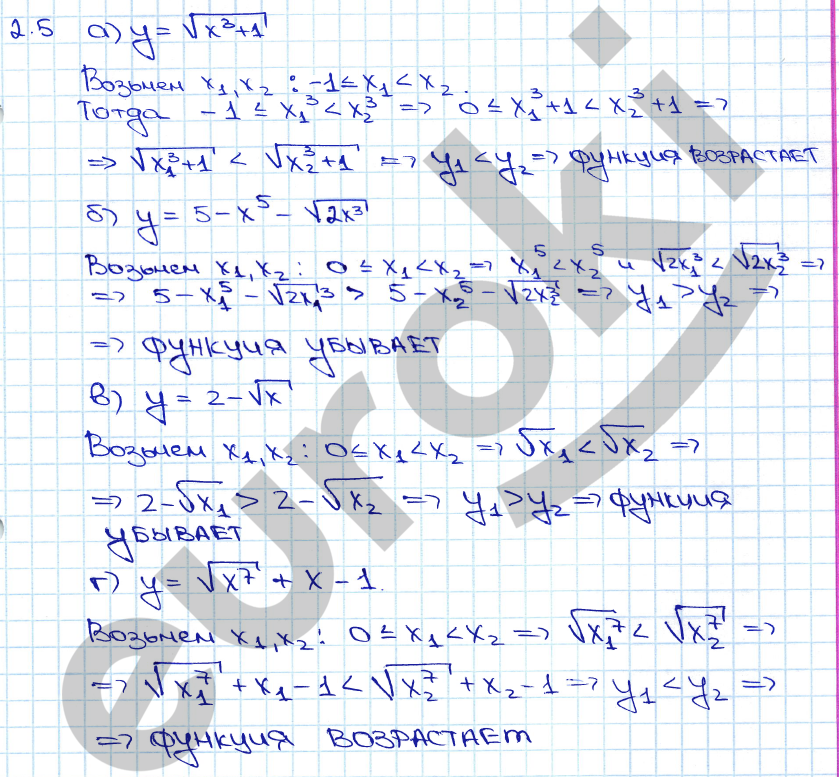 2.5 а) y = √(x³+1)
Возьмем x₁, x₂ : -1 ≤ x₁ < x₂.
Тогда -1 ≤ x₁³ < x₂³ => 0 ≤ x₁³+1 < x₂³+1 =>
=> √(x₁³+1) < √(x₂³+1) => y₁ < y₂ => функция возрастает
б) y = 5 - x⁵ - √(2x³)
Возьмем x₁, x₂ : 0 ≤ x₁ < x₂ => x₁⁵ < x₂⁵ и √(2x₁³) < √(2x₂³) =>
=> 5 - x₁⁵ - √(2x₁³) > 5 - x₂⁵ - √(2x₂³) => y₁ > y₂ =>
=> функция убывает
в) y = 2 - √x
Возьмем x₁, x₂ : 0 ≤ x₁ < x₂ => √x₁ < √x₂ =>
=> 2 - √x₁ > 2 - √x₂ => y₁ > y₂ => функция
убывает
г) y = √(x⁷) + x - 1.
Возьмем x₁, x₂ : 0 ≤ x₁ < x₂ => √(x₁⁷) < √(x₂⁷) =>
=> √(x₁⁷) + x₁ - 1 < √(x₂⁷) + x₂ - 1 => y₁ < y₂ =>
=> функция возрастает
euroki